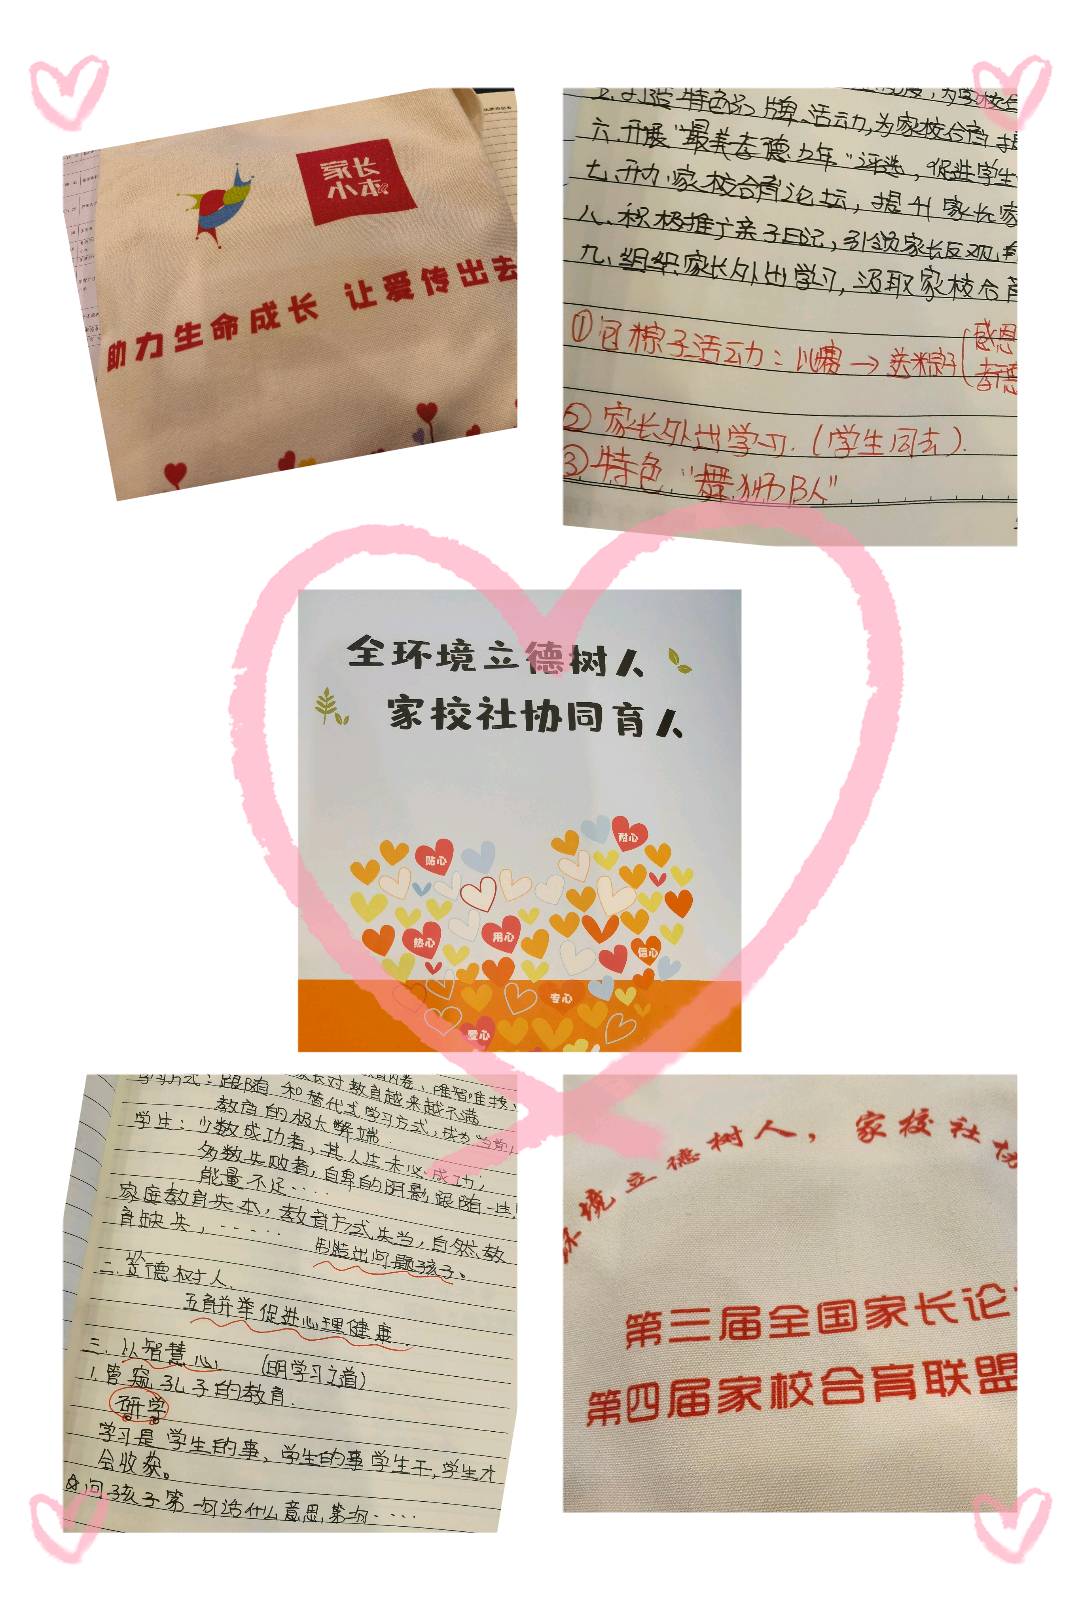 家长
小本
助力生命成长 让爱传出去
特色品牌活动,为家校合育提
六.开展“最美孝德少年”评选,促进学生
七.开办家校合育论坛,提升家长家
八.积极推广亲子日记,引领家长反观
九.组织家长外出学习,汲取家校合育
①包粽子活动:比赛→送粽子
感恩
孝德
②家长外出学习.(学生同去).
③特色“舞狮队”
全环境立德树人
家校社协同育人
耐心
贴心
热心
用心
信心
安心
爱心
家长对教育越来越不满
学习方式:跟随和替代式学习方式,成为当前
教育的极大弊端.
学生:少数成功者,其人生未必成功,
多数失败者,自卑的阴影跟随一生
能量不足....
家庭教育失本,教育方式失当,自然教
育缺失,.....制造出问题孩子。
二.立德树人.
五育并举促进心理健康
三.以智慧心 (明学习之道)
1.管窥孔子的教育.
研学
学习是学生的事,学生的事学生干,学生才
会收获。
问孩子第一句话什么意思,第二句....
环境立德树人,家校社协
第三届全国家长论
第四届家校合育联盟